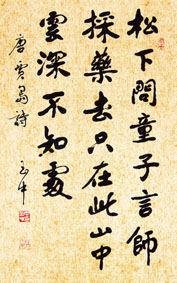 松下問童子言師
採藥去只在此山中
雲深不知處
唐賈島詩